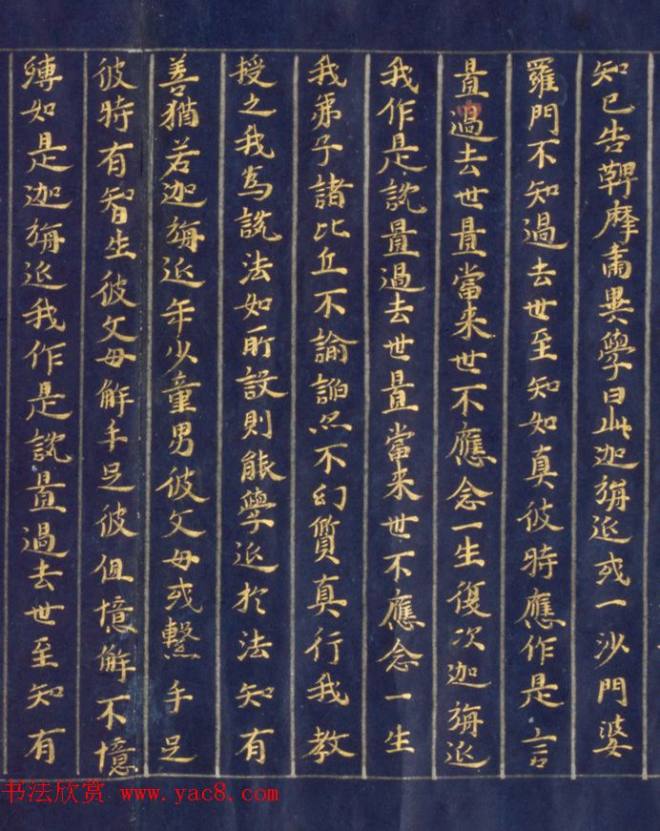 知已告鞞摩肅異學曰此迦旃延或一沙門婆
羅門不知過去世至知如真彼時應作是言
置過去世置當来世不應念一生復次迦旃延
我作是說置過去世置當来世不應念一生
我弟子諸比丘不諭諂亦不幻質真行我教
授之我為說法如所設則能學近於法知有
善猶若迦旃延年少童男彼父母或繫手足
彼時有智生彼父母解手足彼但憶解不憶
縛如是迦旃延我作是說置過去世至知有
书法欣赏 www.yac8.com